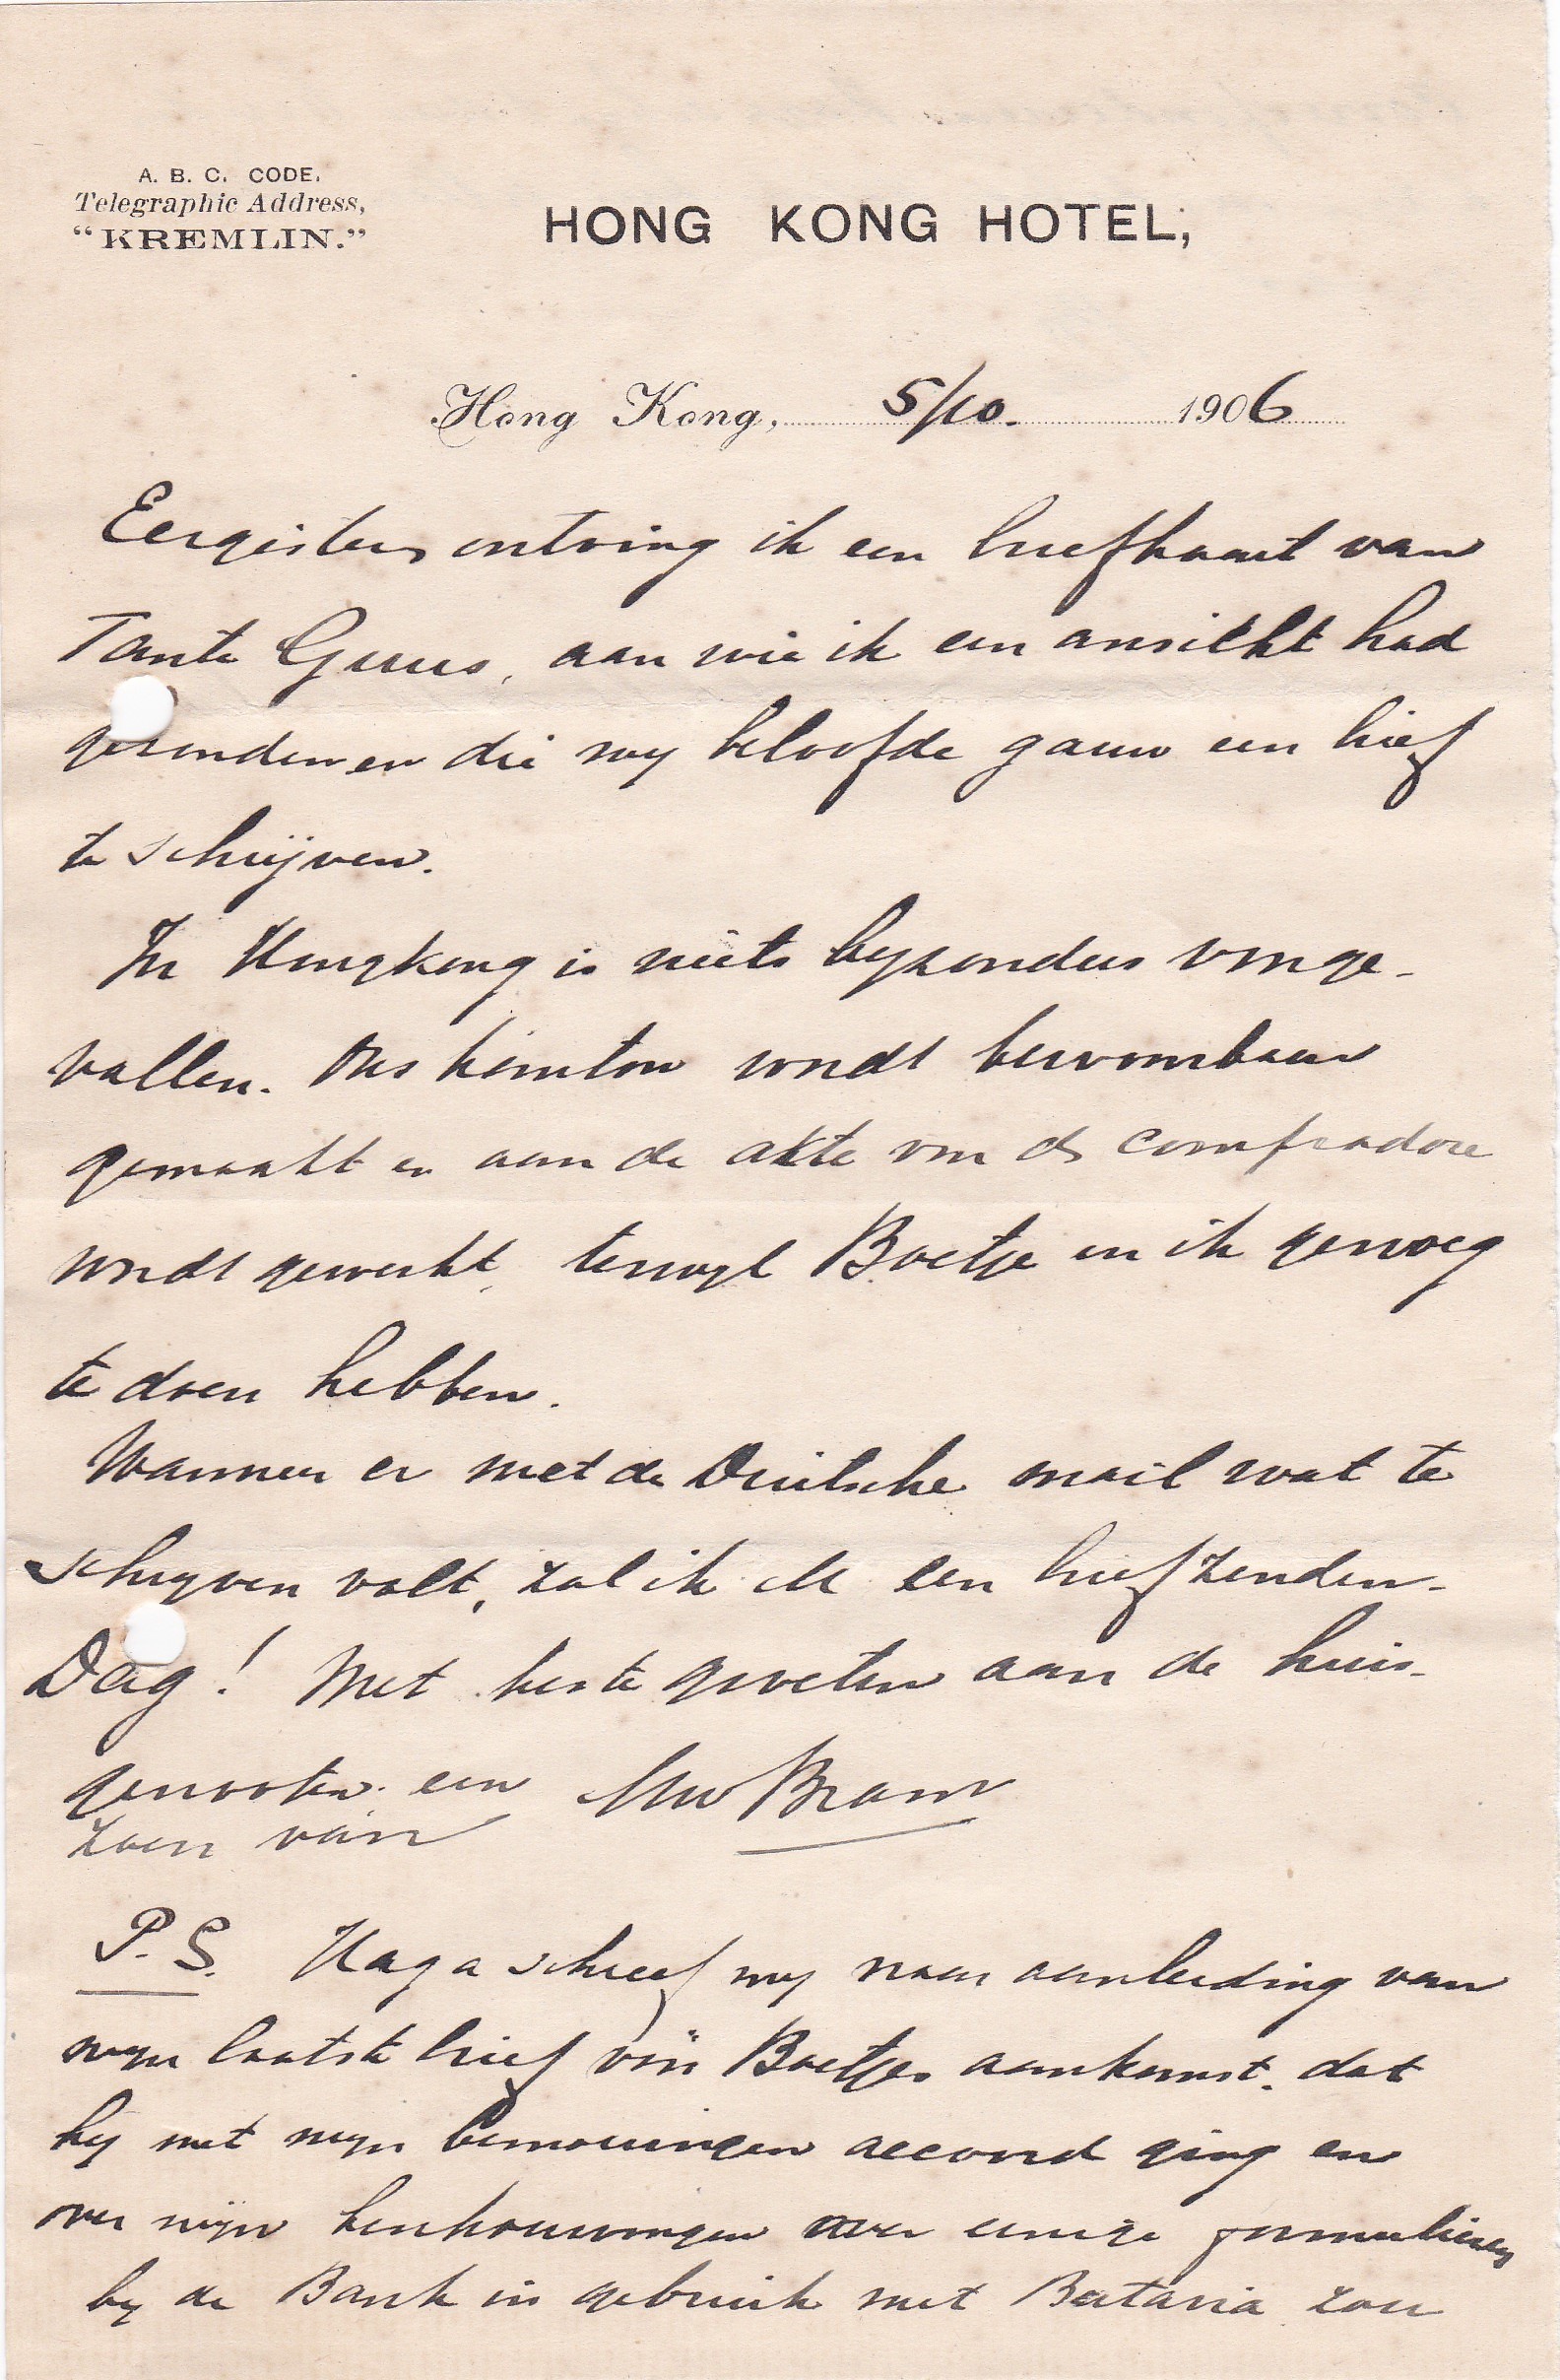 A. B. C. CODE.
Telegraphic Address,
"KREMLIN."
HONG KONG HOTEL,
Hong Kong, 5/10. 1906
Eergisteren ontving ik een briefkaart van
Tante Guus, aan wie ik een ansicht had
gezonden en die my beloofde gauw een brief
te schrijven.
In Hongkong is niets byzonders voorge-
vallen. Ons kantoor wordt bewoonbaar
gemaakt en aan de akte van de compradore
wordt gewerkt, terwyl Boetje en ik genoeg
te doen hebben.
Wanneer er met de Duitsche mail wat te
schryven valt, zal ik U een brief zenden.
Dag! Met beste groeten aan de huis-
genooten een Uw Bram
zoen van
P.S. Haga schreef my naar aanleiding van
myn laatste brief vóór Boetjes aankomst, dat
hy met myn bemoeiingen accoord ging en
over mijn beschouwingen over eenige formulieren
by de Bank in gebruik met Batavia zou